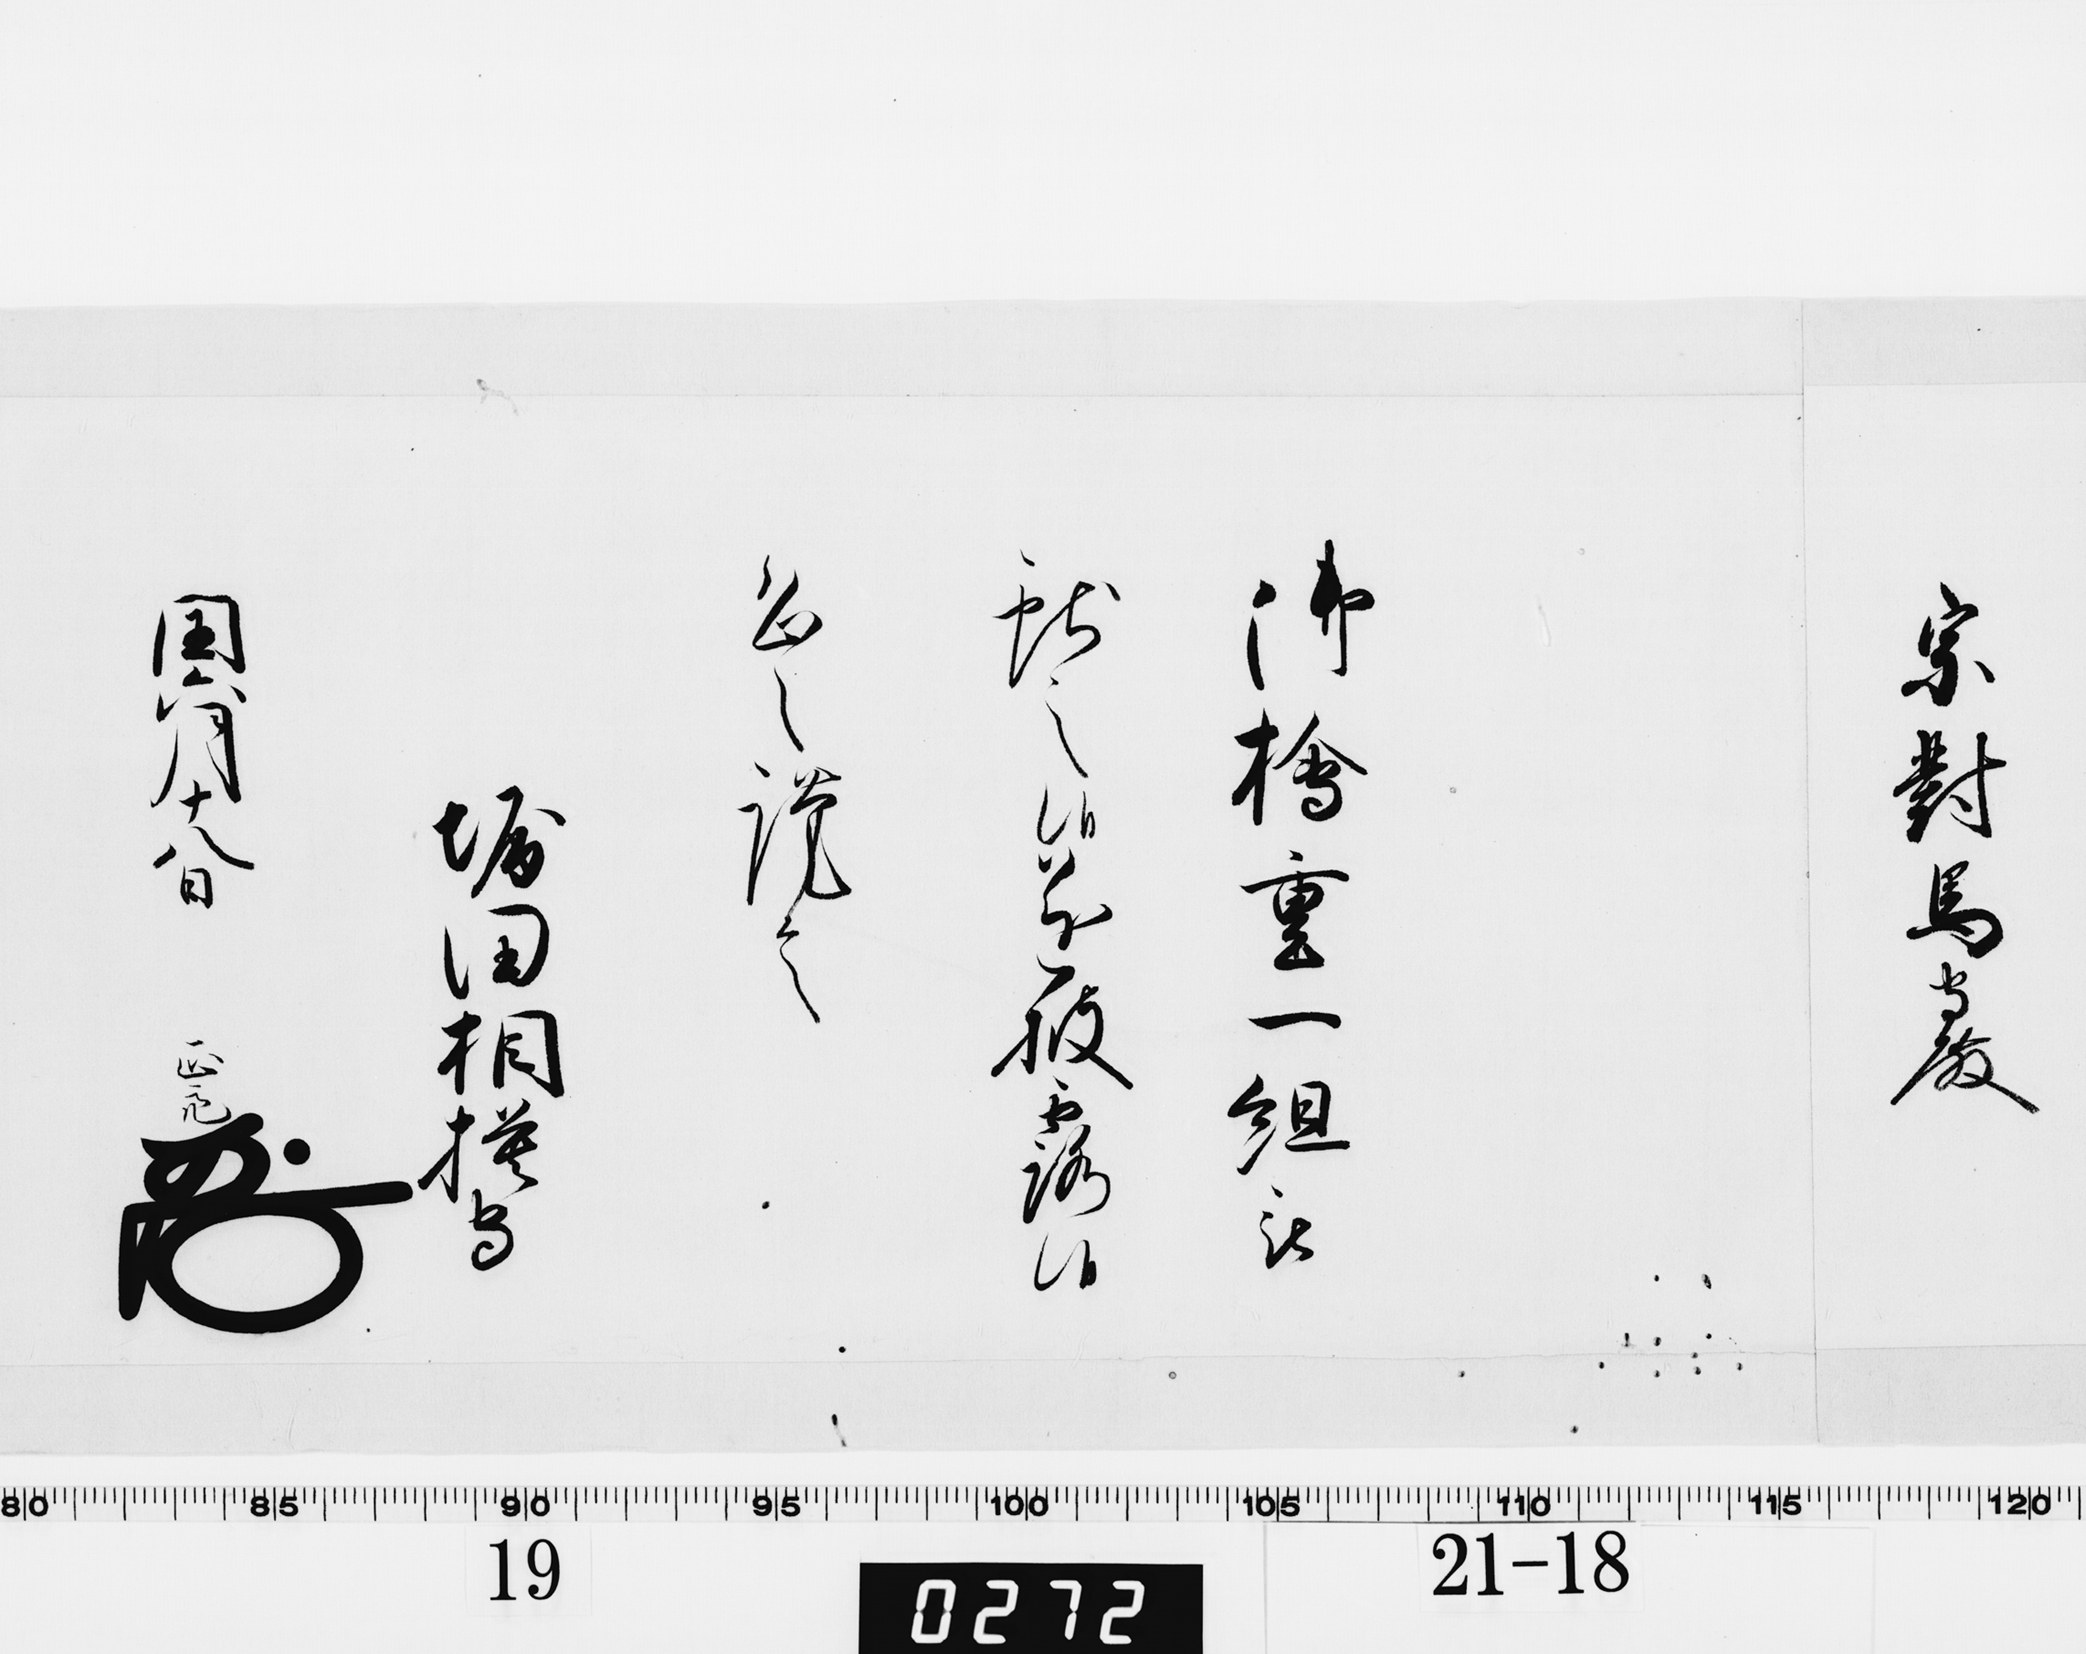 宗對馬守殿
御檜重一組被
献之候遂披露候
恐々謹言
堀田相模守
閏六月十八日 正亮
80 85 90 95 100 105 110 115 120
19
0272
21-18